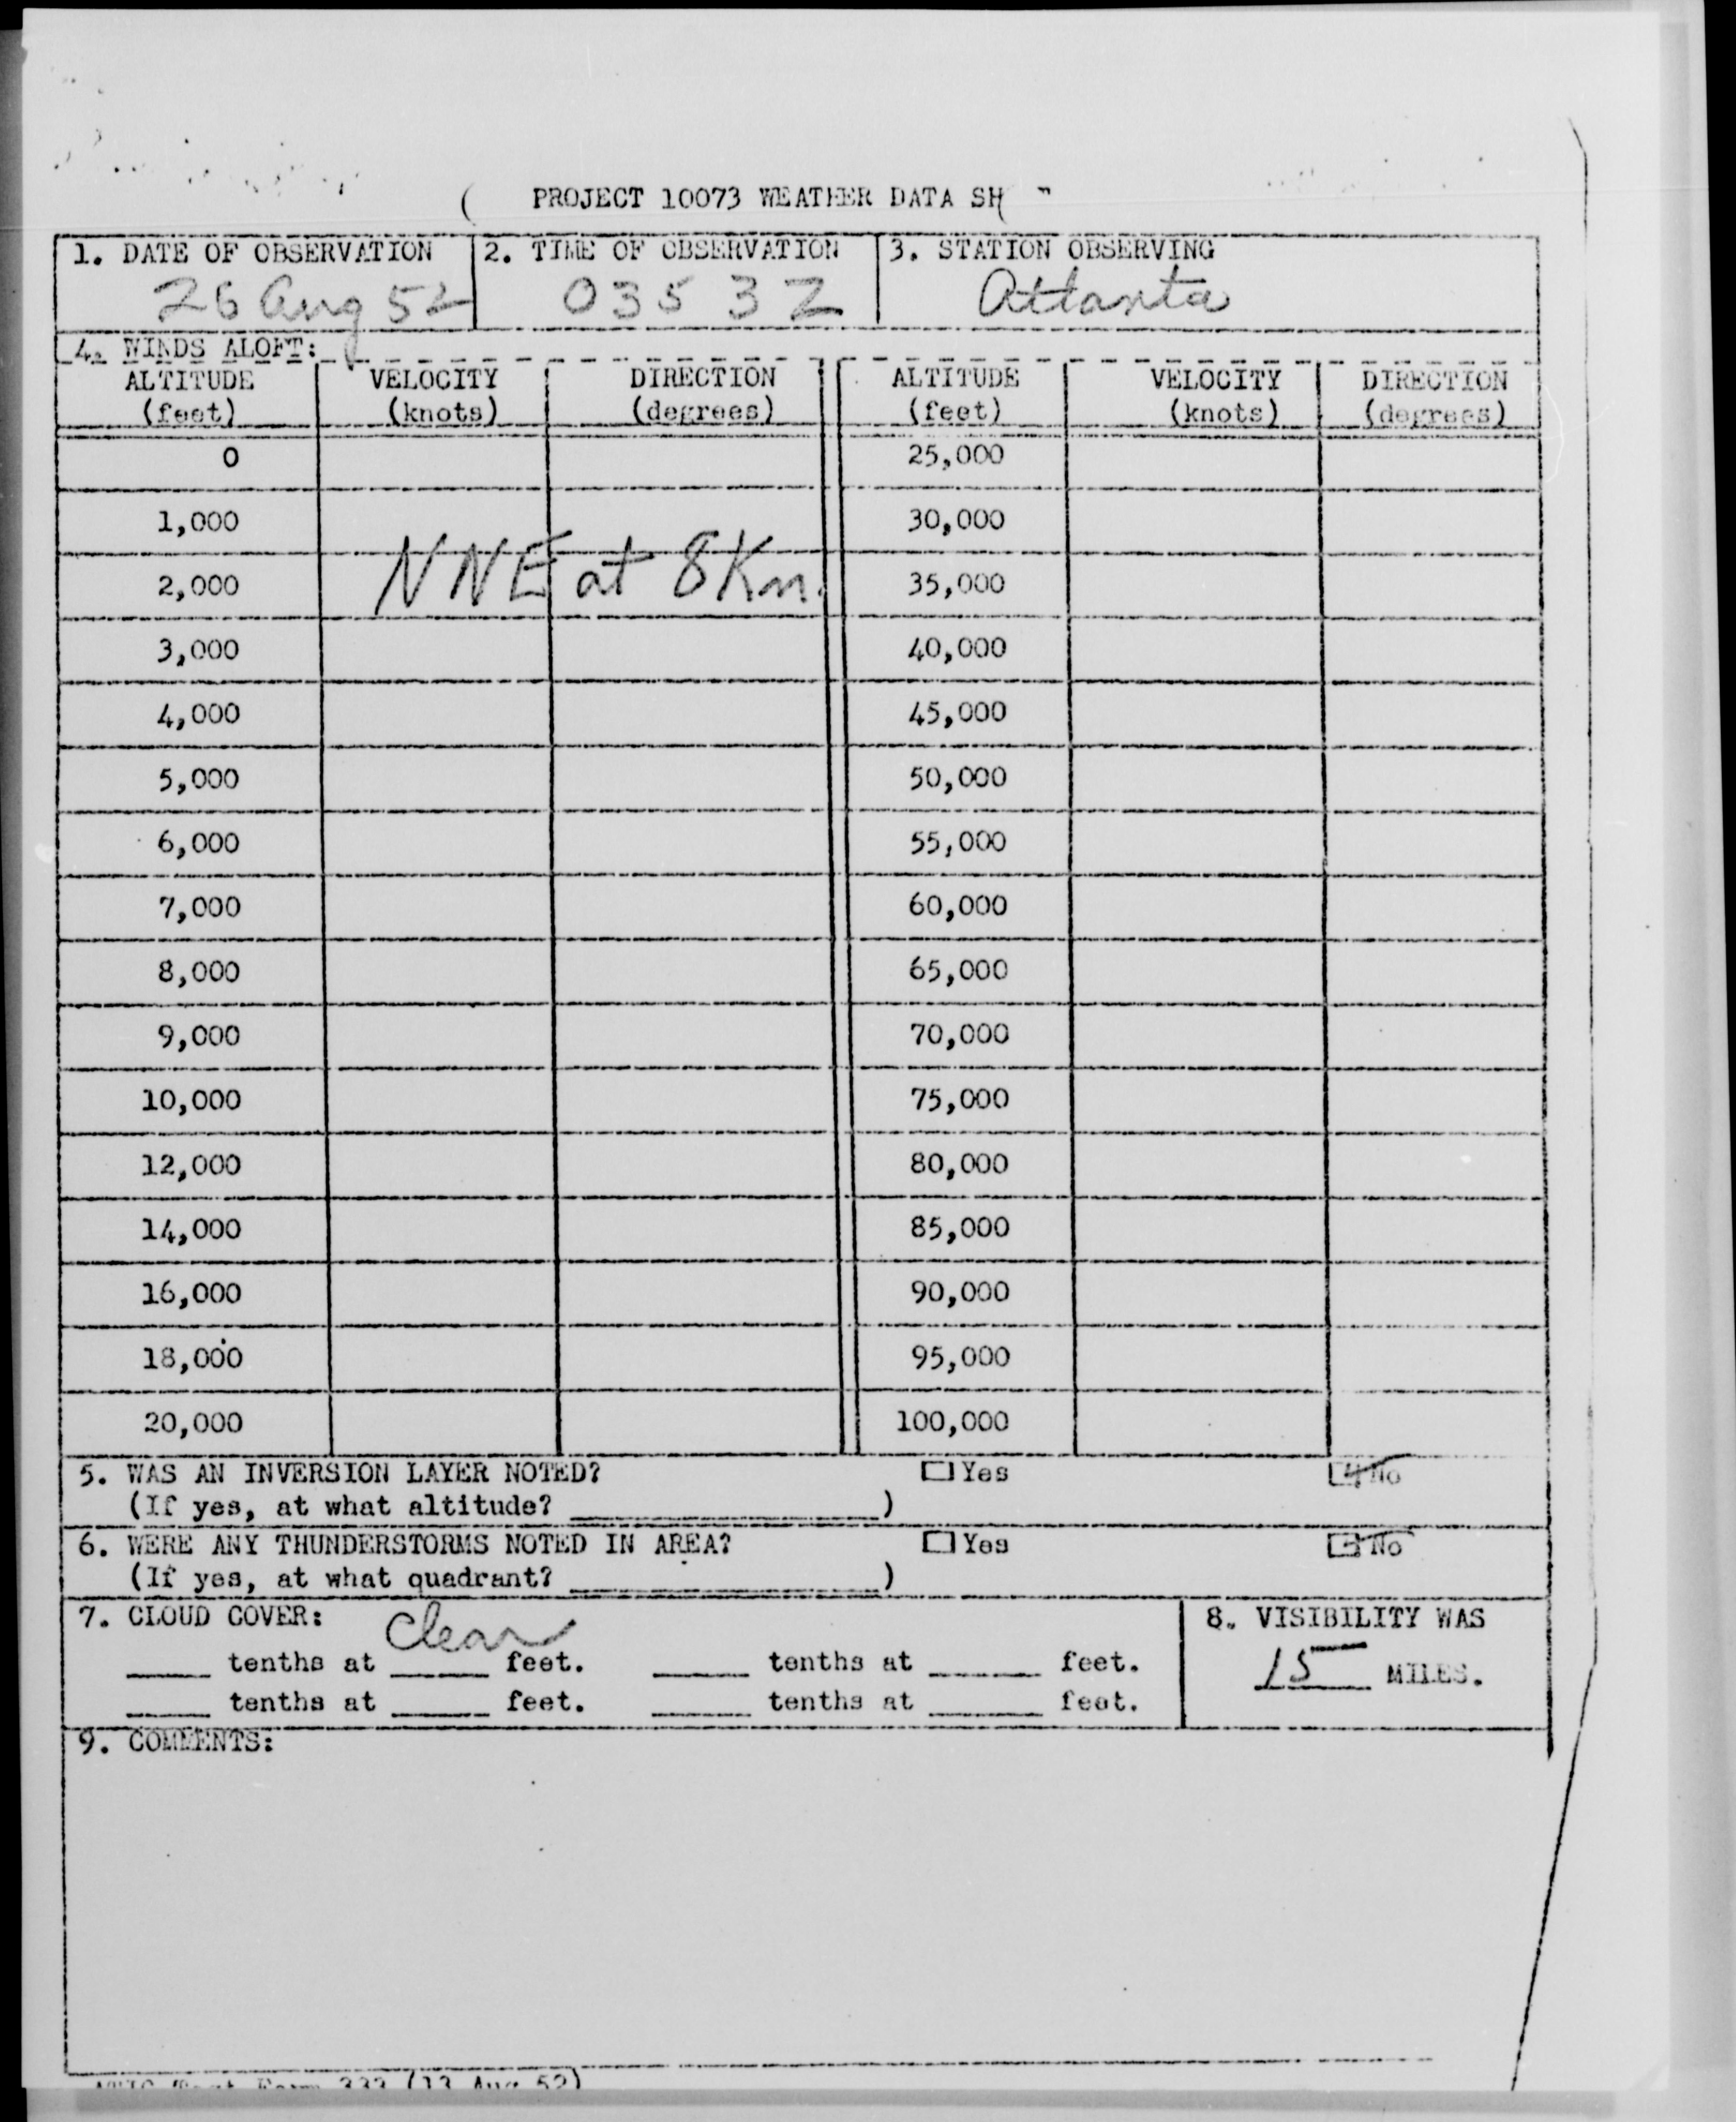 PROJECT 10073 WEATHER DATA SH
1. DATE OF OBSERVATION 2. TIME OF OBSERVATION 3. STATION OBSERVING
26 Aug 52 0353Z Atlanta
4. WINDS ALOFT:
ALTITUDE VELOCITY DIRECTION ALTITUDE VELOCITY DIRECTION
(feet) (knots) (degrees) (feet) (knots) (degrees)
0 25,000
1,000 30,000
2,000 NNE at 8 Kn. 35,000
3,000 40,000
4,000 45,000
5,000 50,000
6,000 55,000
7,000 60,000
8,000 65,000
9,000 70,000
10,000 75,000
12,000 80,000
14,000 85,000
16,000 90,000
18,000 95,000
20,000 100,000
5. WAS AN INVERSION LAYER NOTED? Yes No
(If yes, at what altitude? )
6. WERE ANY THUNDERSTORMS NOTED IN AREA? Yes No
(If yes, at what quadrant? )
7. CLOUD COVER: Clear 8. VISIBILITY WAS
tenths at feet. tenths at feet. 15 MILES.
tenths at feet. tenths at feet.
9. COMMENTS:
333 (13 Aug 52)